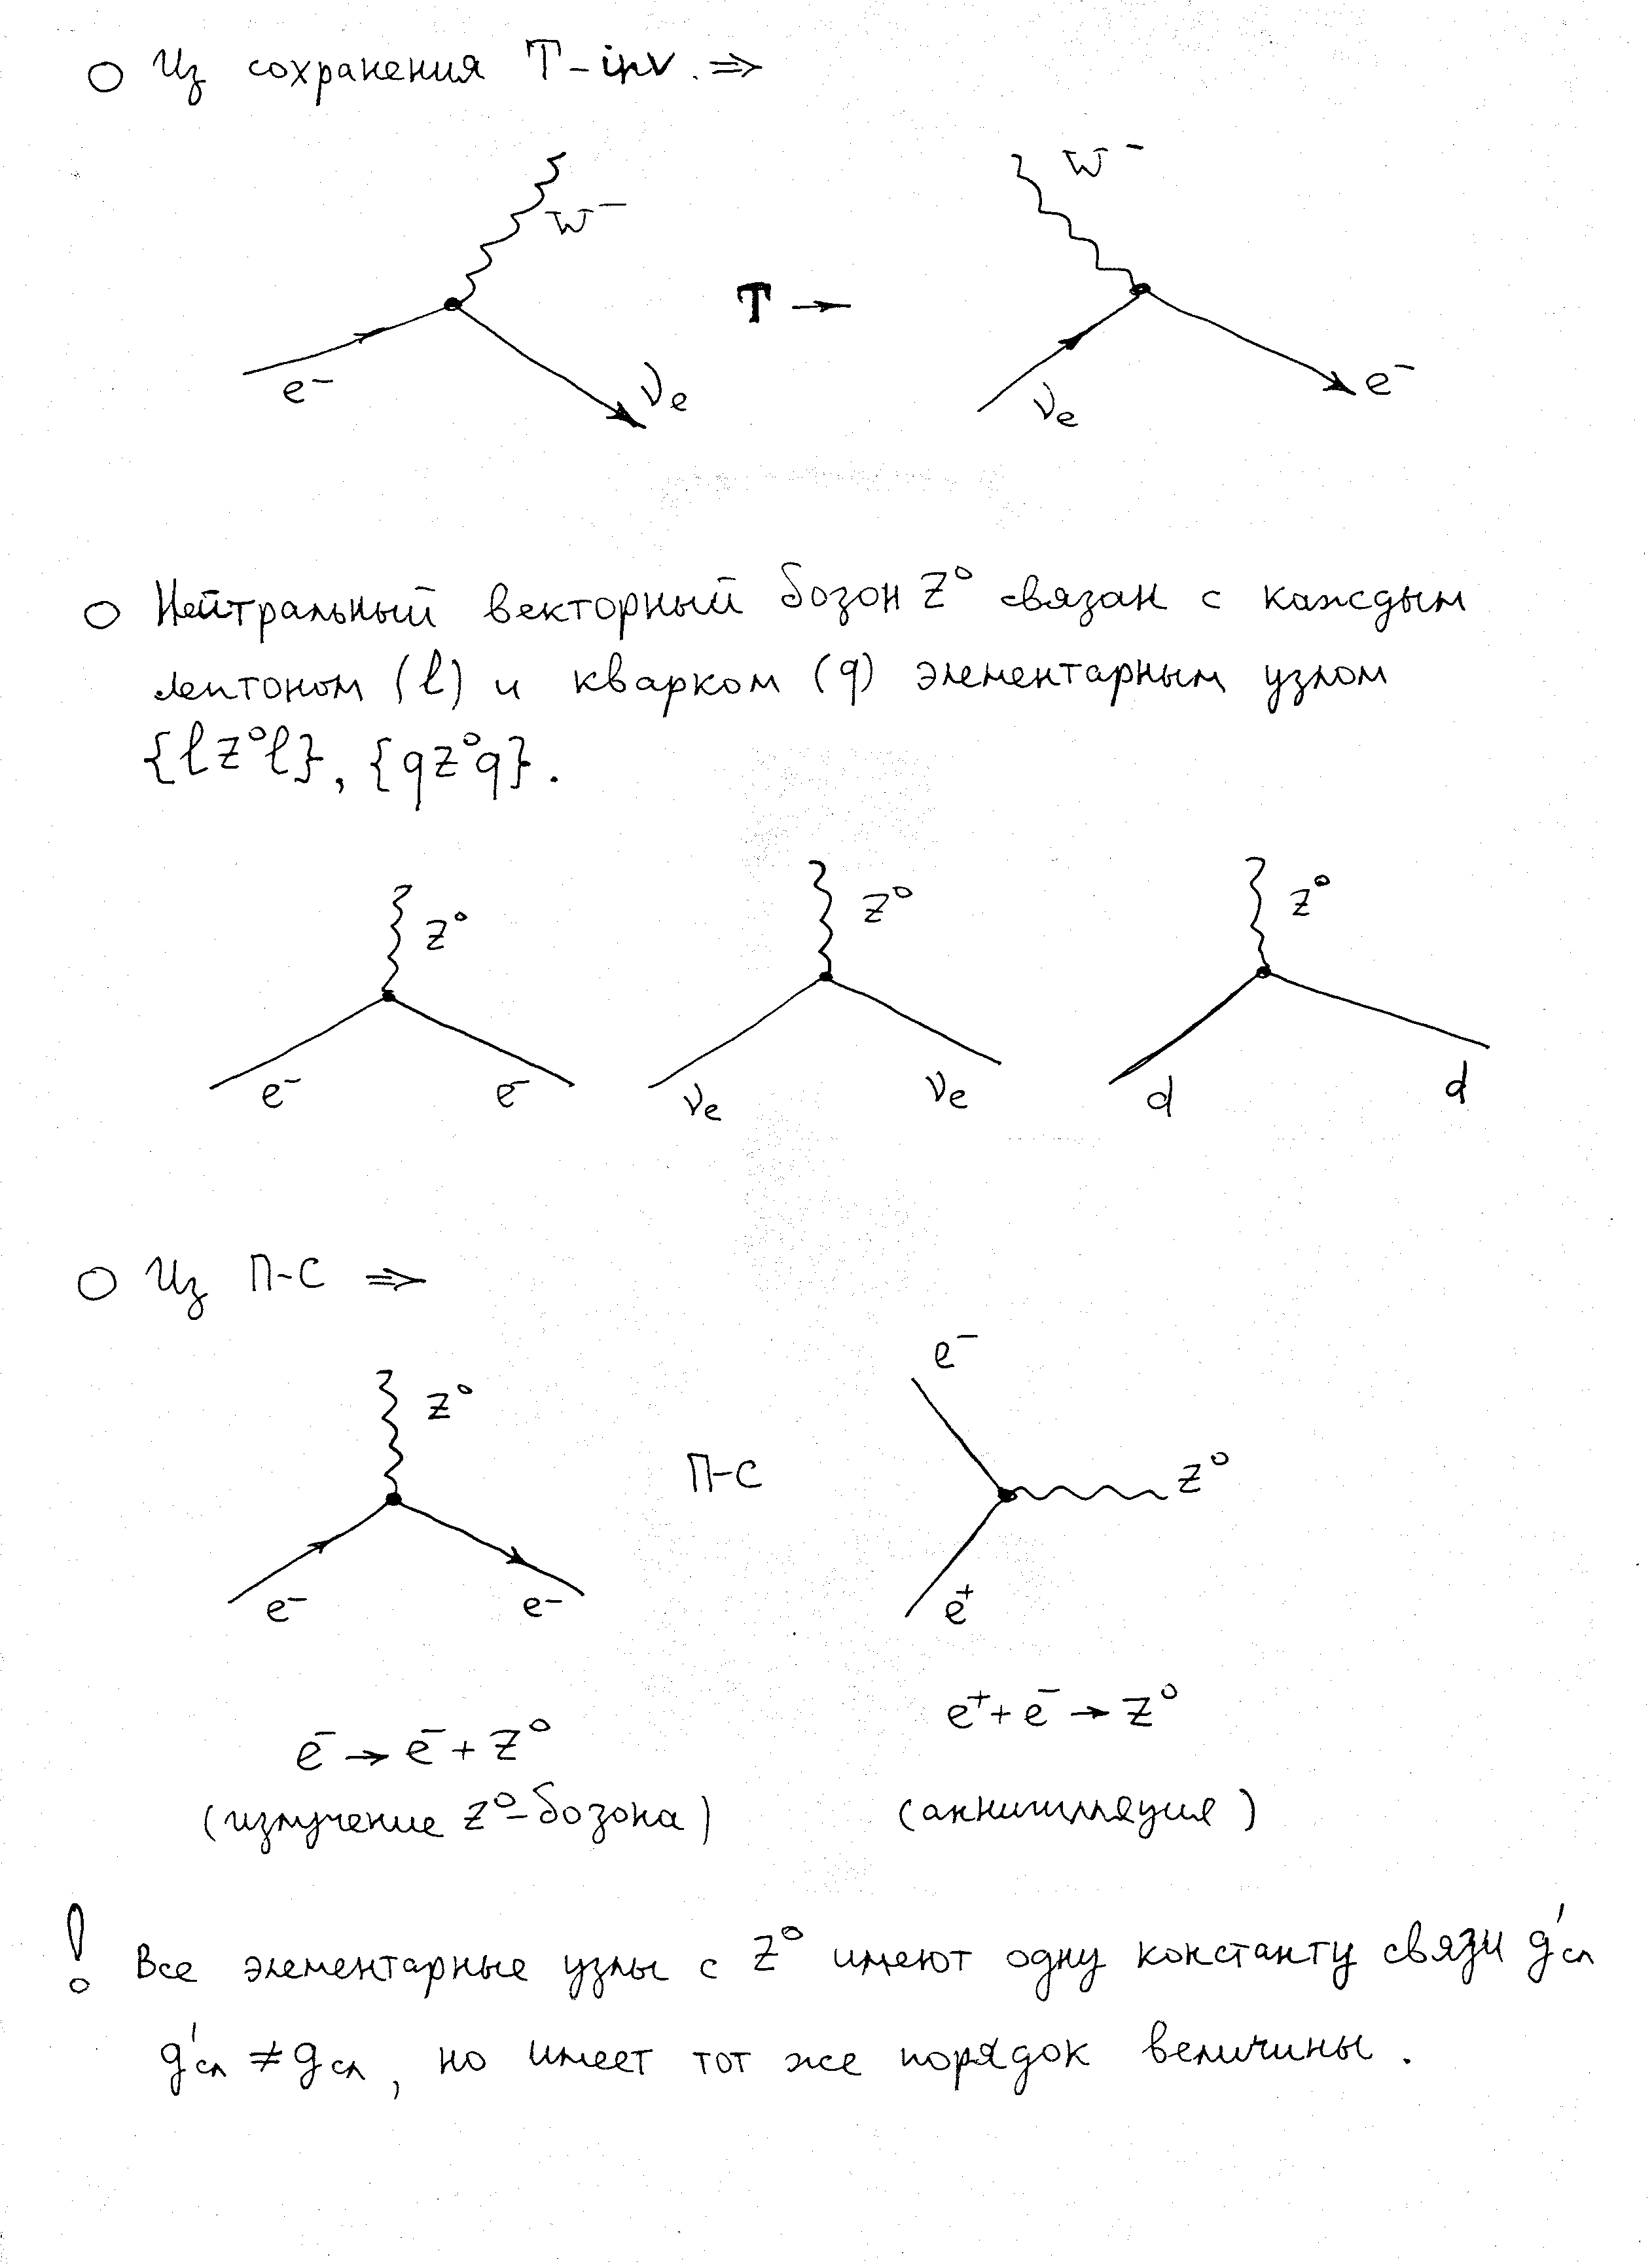 ○ Из сохранения T-inv. ⇒
W⁻
W⁻
T →
e⁻
νₑ
νₑ
e⁻
○ Нейтральный векторный бозон Z⁰ связан с каждым
лептоном (l) и кварком (q) элементарным узлом
{l Z⁰ l}, {q Z⁰ q}.
Z⁰
Z⁰
Z⁰
e⁻
e⁻
νₑ
νₑ
d
d
○ Из П-С ⇒
e⁻
Z⁰
П-С
Z⁰
e⁻
e⁻
e⁺
e⁻ → e⁻ + Z⁰
e⁺ + e⁻ → Z⁰
(излучение Z⁰-бозона)
(аннигиляция)
! Все элементарные узлы с Z⁰ имеют одну константу связи g'сл
g'сл ≠ gсл, но имеет тот же порядок величины.